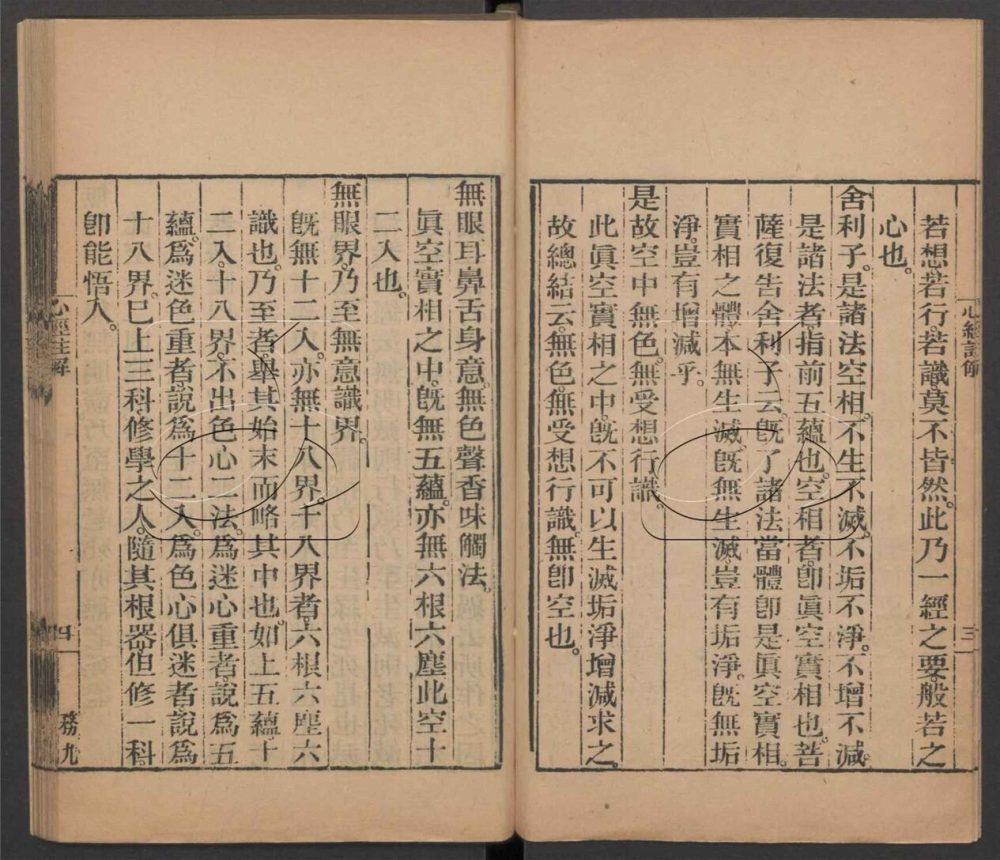 若想。若行。若識。莫不皆然。此乃一經之要。般若之
心也。
舍利子。是諸法空相。不生不滅。不垢不淨。不增不減。
是諸法者。指前五蘊也。空相者。卽眞空實相也。菩
薩復告舍利子云。旣了諸法當體卽是眞空實相。
實相之體。本無生滅。旣無生滅。豈有垢淨。旣無垢
淨。豈有增減乎。
是故空中無色。無受想行識。
此眞空實相之中。旣不可以生滅垢淨增減求之。
故總結云。無色。無受想行識。無卽空也。
心經註解
三
無眼耳鼻舌身意。無色聲香味觸法。
眞空實相之中。旣無五蘊。亦無六根六塵。此空十
二入也。
無眼界。乃至無意識界。
旣無十二入。亦無十八界。十八界者。六根六塵六
識也。乃至者。舉其始末而略其中也。如上五蘊。十
二入。十八界。不出色心二法。爲迷心重者。說爲五
蘊。爲迷色重者。說爲十二入。爲色心俱迷者。說爲
十八界。已上三科。修學之人。隨其根器。但修一科。
卽能悟入。
心經註解
四
務九